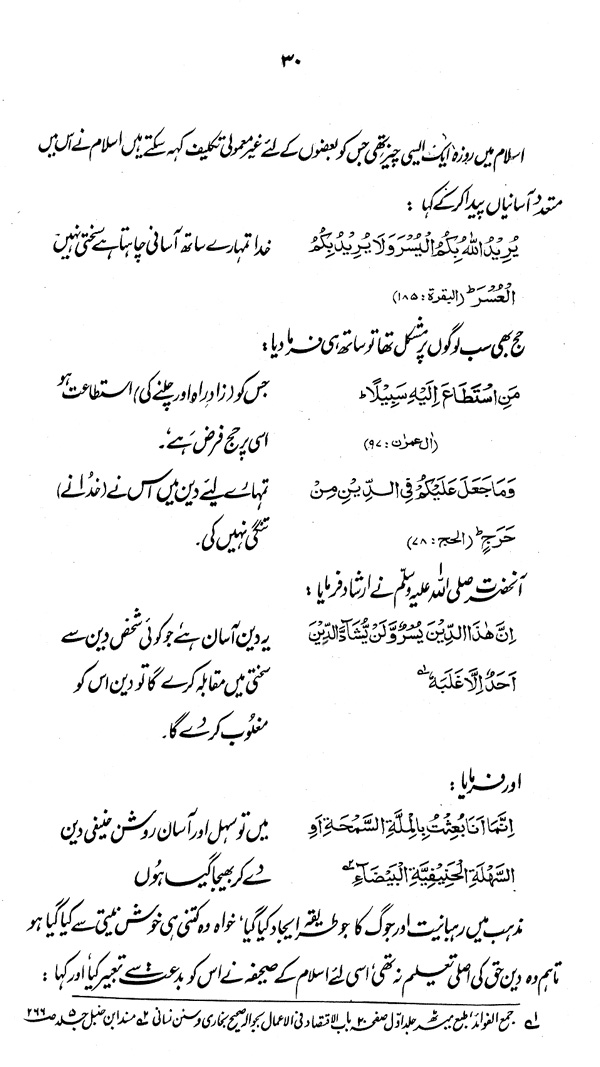 ۳۰
اسلام میں روزہ ایک ایسی چیز تھی جس کو بعضوں کے لئے غیر معمولی تکلیف کہہ سکتے ہیں اسلام نے اس میں
متعدد آسانیاں پیدا کر کے کہا :
يُرِيْدُ اللّٰهُ بِكُمُ الْيُسْرَ وَلَا يُرِيْدُ بِكُمُ
الْعُسْرَ ؕ (البقرة : ۱۸۵)
خدا تمہارے ساتھ آسانی چاہتا ہے سختی نہیں
حج بھی سب لوگوں پر مشکل تھا تو ساتھ ہی فرما دیا :
مَنِ اسْتَطَاعَ اِلَيْهِ سَبِيْلًا ؕ
(اٰل عمران : ۹۷)
جس کو (زاد راہ اور چلنے کی) استطاعت ہو
اسی پر حج فرض ہے۔
وَمَا جَعَلَ عَلَيْكُمْ فِي الدِّيْنِ مِنْ
حَرَجٍ ؕ (الحج : ۷۸)
تمہارے لیئے دین میں اس نے (خدا نے)
تنگی نہیں کی۔
آنحضرت صلی اللہ علیہ وسلم نے ارشاد فرمایا :
اِنَّ هٰذَا الدِّيْنَ يُسْرٌ وَّلَنْ يُّشَادَّ الدِّيْنَ
اَحَدٌ اِلَّا غَلَبَهٗ ۱ے
یہ دین آسان ہے جو کوئی شخص دین سے
سختی میں مقابلہ کرے گا تو دین اس کو
مغلوب کر دے گا۔
اور فرمایا :
اِنَّمَا اَنَا بُعِثْتُ بِالْمِلَّةِ السَّمْحَةِ اَوِ
السَّهْلَةِ الْحَنِيْفِيَّةِ الْبَيْضَاءِ ۲ے
میں تو سہل اور آسان روشن حنیفی دین
دے کر بھیجا گیا ہوں
مذہب میں رہبانیت اور جوگ کا جو طریقہ ایجاد کیا گیا، خواہ وہ کتنی ہی خوش نیتی سے کیا گیا ہو
تاہم وہ دین حق کی اصلی تعلیم نہ تھی، اسی لئے اسلام کے صحیفہ نے اس کو بدعت سے تعبیر کیا اور کہا :
۱ے جمع الفوائد، طبع میرٹھ جلد اول صفحہ ۲۰ باب الاقتصاد فی الاعمال بحوالہ صحیح بخاری و سنن نسائی ۲ے مسند ابن حنبل جلد ۵ صفحہ ۲۶۶